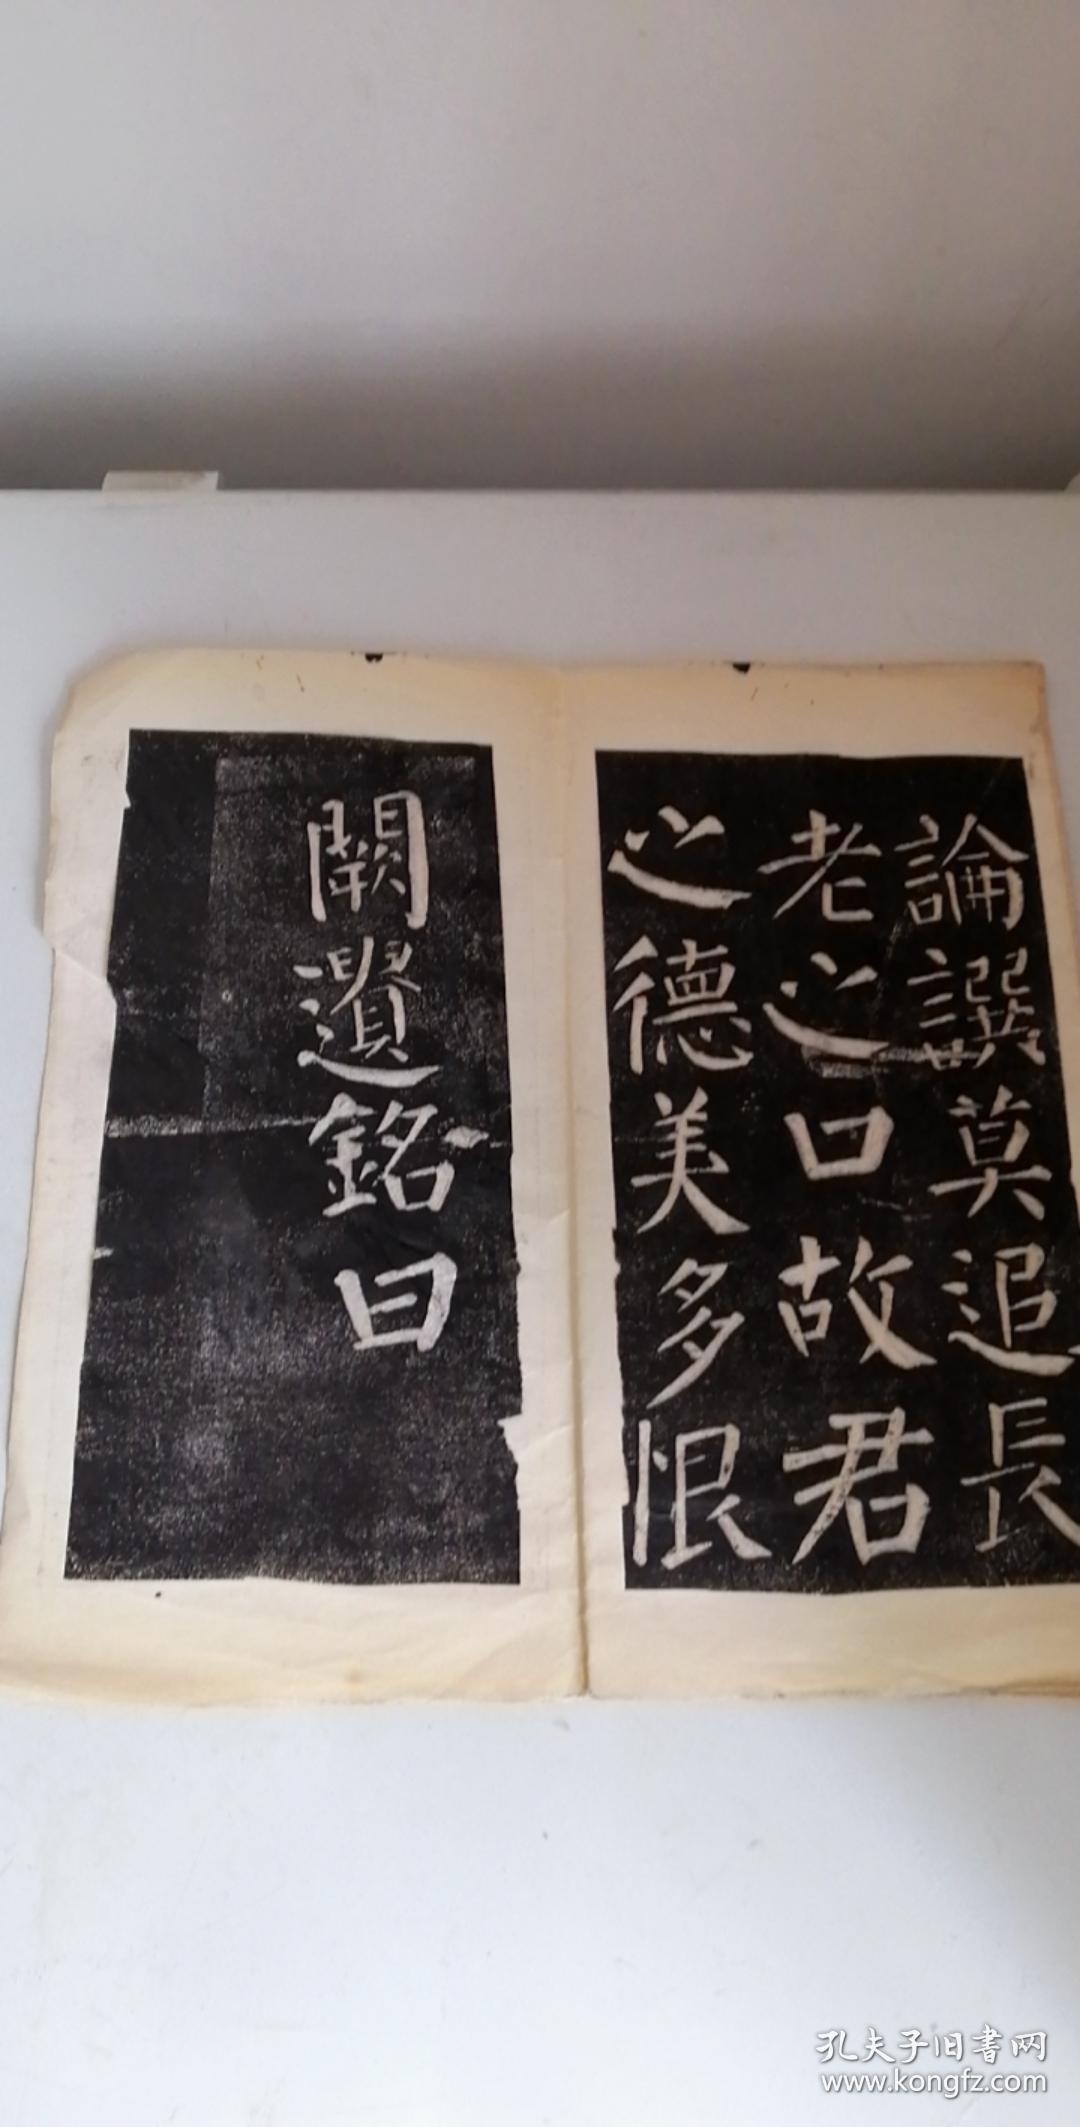 論譔莫追長
老之口故君
之德美多恨
闕遺銘曰
孔夫子旧书网
www.kongfz.com